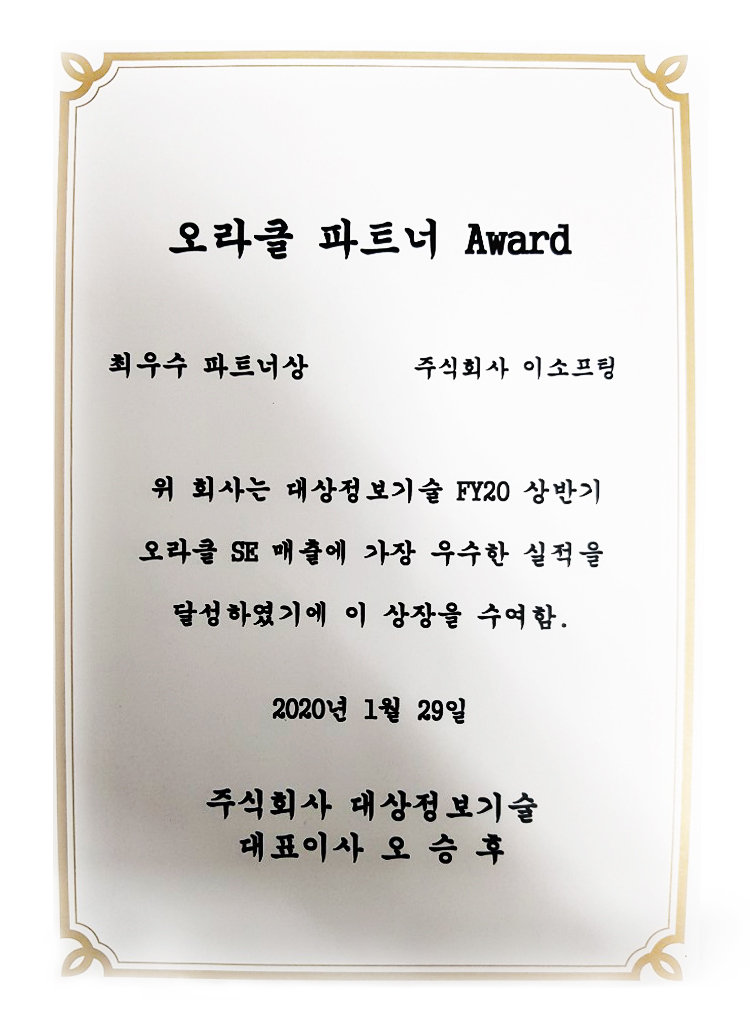 오라클 파트너 Award
최우수 파트너상 주식회사 이소프팅
위 회사는 대상정보기술 FY20 상반기
오라클 SE 매출에 가장 우수한 실적을
달성하였기에 이 상장을 수여함.
2020년 1월 29일
주식회사 대상정보기술
대표이사 오 승 후